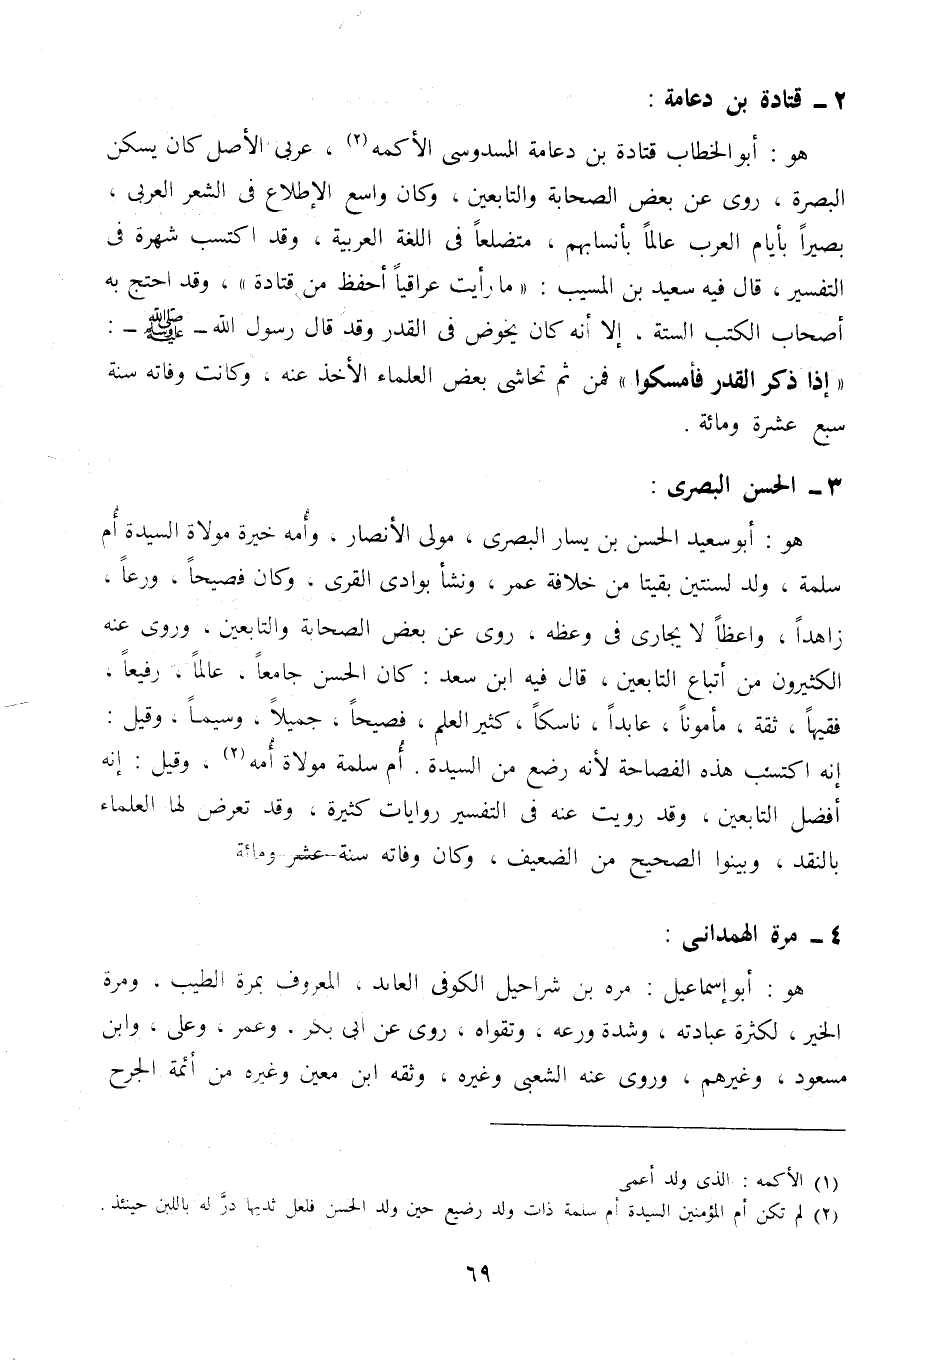 ٢ ــ قتادة بن دعامة :
هو : أبو الخطاب قتادة بن دعامة المسدوسى الأكمه (٢) ، عربى الأصل كان يسكن
البصرة ، روى عن بعض الصحابة والتابعين ، وكان واسع الإطلاع فى الشعر العربى ،
بصيراً بأيام العرب عالماً بأنسابهم ، متضلعاً فى اللغة العربية ، وقد اكتسب شهرة فى
التفسير ، قال فيه سعيد بن المسيب : « ما رأيت عراقياً أحفظ من قتادة » ، وقد احتج به
أصحاب الكتب الستة . إلا أنه كان يخوض فى القدر وقد قال رسول الله ــ ﷺ ــ :
« إذا ذكر القدر فأمسكوا » فمن ثم تحاشى بعض العلماء الأخذ عنه ، وكانت وفاته سنة
سبع عشرة ومائة .
٣ ــ الحسن البصرى :
هو : أبو سعيد الحسن بن يسار البصرى ، مولى الأنصار ، وأُمه خيرة مولاة السيدة أُم
سلمة ، ولد لسنتين بقيتا من خلافة عمر ، ونشأ بوادى القرى ، وكان فصيحاً ، ورعاً ،
زاهداً ، واعظاً لا يجارى فى وعظه ، روى عن بعض الصحابة والتابعين ، وروى عنه
الكثيرون من أتباع التابعين ، قال فيه ابن سعد : كان الحسن جامعاً ، عالماً ، رفيعاً ،
فقيهاً ، ثقة ، مأموناً ، عابداً ، ناسكاً ، كثير العلم ، فصيحاً ، جميلاً ، وسيماً ، وقيل :
إنه اكتسب هذه الفصاحة لأنه رضع من السيدة . أُم سلمة مولاة أُمه (٢) ، وقيل : إنه
أفضل التابعين ، وقد رويت عنه فى التفسير روايات كثيرة ، وقد تعرض لها العلماء
بالنقد ، وبينوا الصحيح من الضعيف ، وكان وفاته سنة عشر ومائة
٤ ــ مرة الهمدانى :
هو : أبو إسماعيل : مره بن شراحيل الكوفى العابد ، المعروف بمرة الطيب . ومرة
الخير ، لكثرة عبادته ، وشدة ورعه ، وتقواه ، روى عن ابى بكر . وعمر ، وعلى ، وابن
مسعود ، وغيرهم ، وروى عنه الشعبى وغيره ، وثقه ابن معين وغيره من أئمة الجرح
(١) الأكمه : الذى ولد أعمى
(٢) لم تكن أم المؤمنين السيدة أم سلمة ذات ولد رضيع حين ولد الحسن فلعل ثديها درَّ له باللبن حينئذ .
٦٩